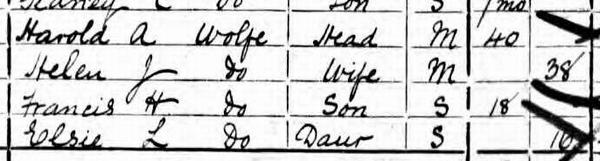 Stanley C Do Son S 1 mo
Harold A Wolfe Head M 40
Helen J do Wife M 38
Francis H do Son S 18
Elsie L Do Daur S 16